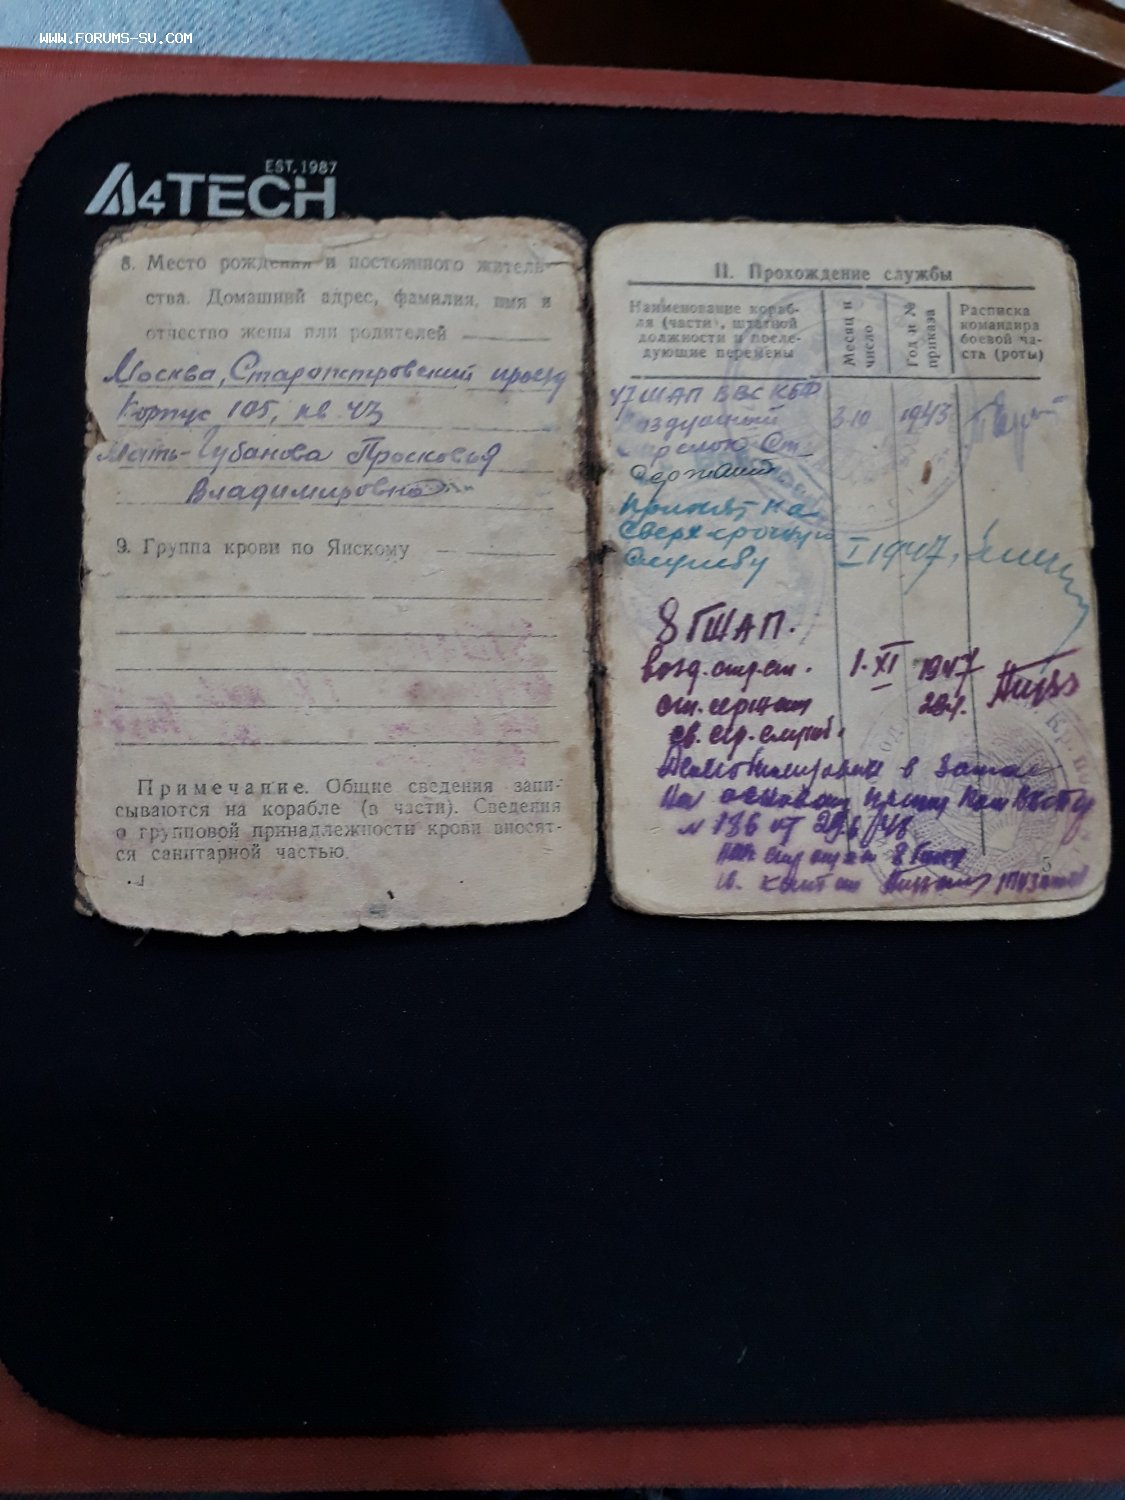 WWW.FORUMS-SU.COM
EST. 1987
A4TECH
8. Место рождения и постоянного житель-
ства. Домашний адрес, фамилия, имя и
отчество жены или родителей
Москва, Старопетровский проезд
Корпус 105, кв. 43
Мать - Губанова Просковья
Владимировна
9. Группа крови по Янскому
Примечание. Общие сведения запи-
сываются на корабле (в части). Сведения
о групповой принадлежности крови вносят-
ся санитарной частью.
4
II. Прохождение службы
Наименование кораб-
ля (части), штатной
должности и после-
дующие перемены
Месяц и
число
Год и №
приказа
Расписка
командира
боевой ча-
сти (роты)
47 ШАП ВВС КБФ
воздушный 3.10 1943
стрелок Ст.
Сержант
принят на
сверхсрочную
службу I 1947,
8 ГШАП.
возд. стр. ст. 1.XI 1947
ст. сержант
св. ср. служб.
Демобилизован в запас
На основан
№ 136 от 29.6/48
8 Гшап
5